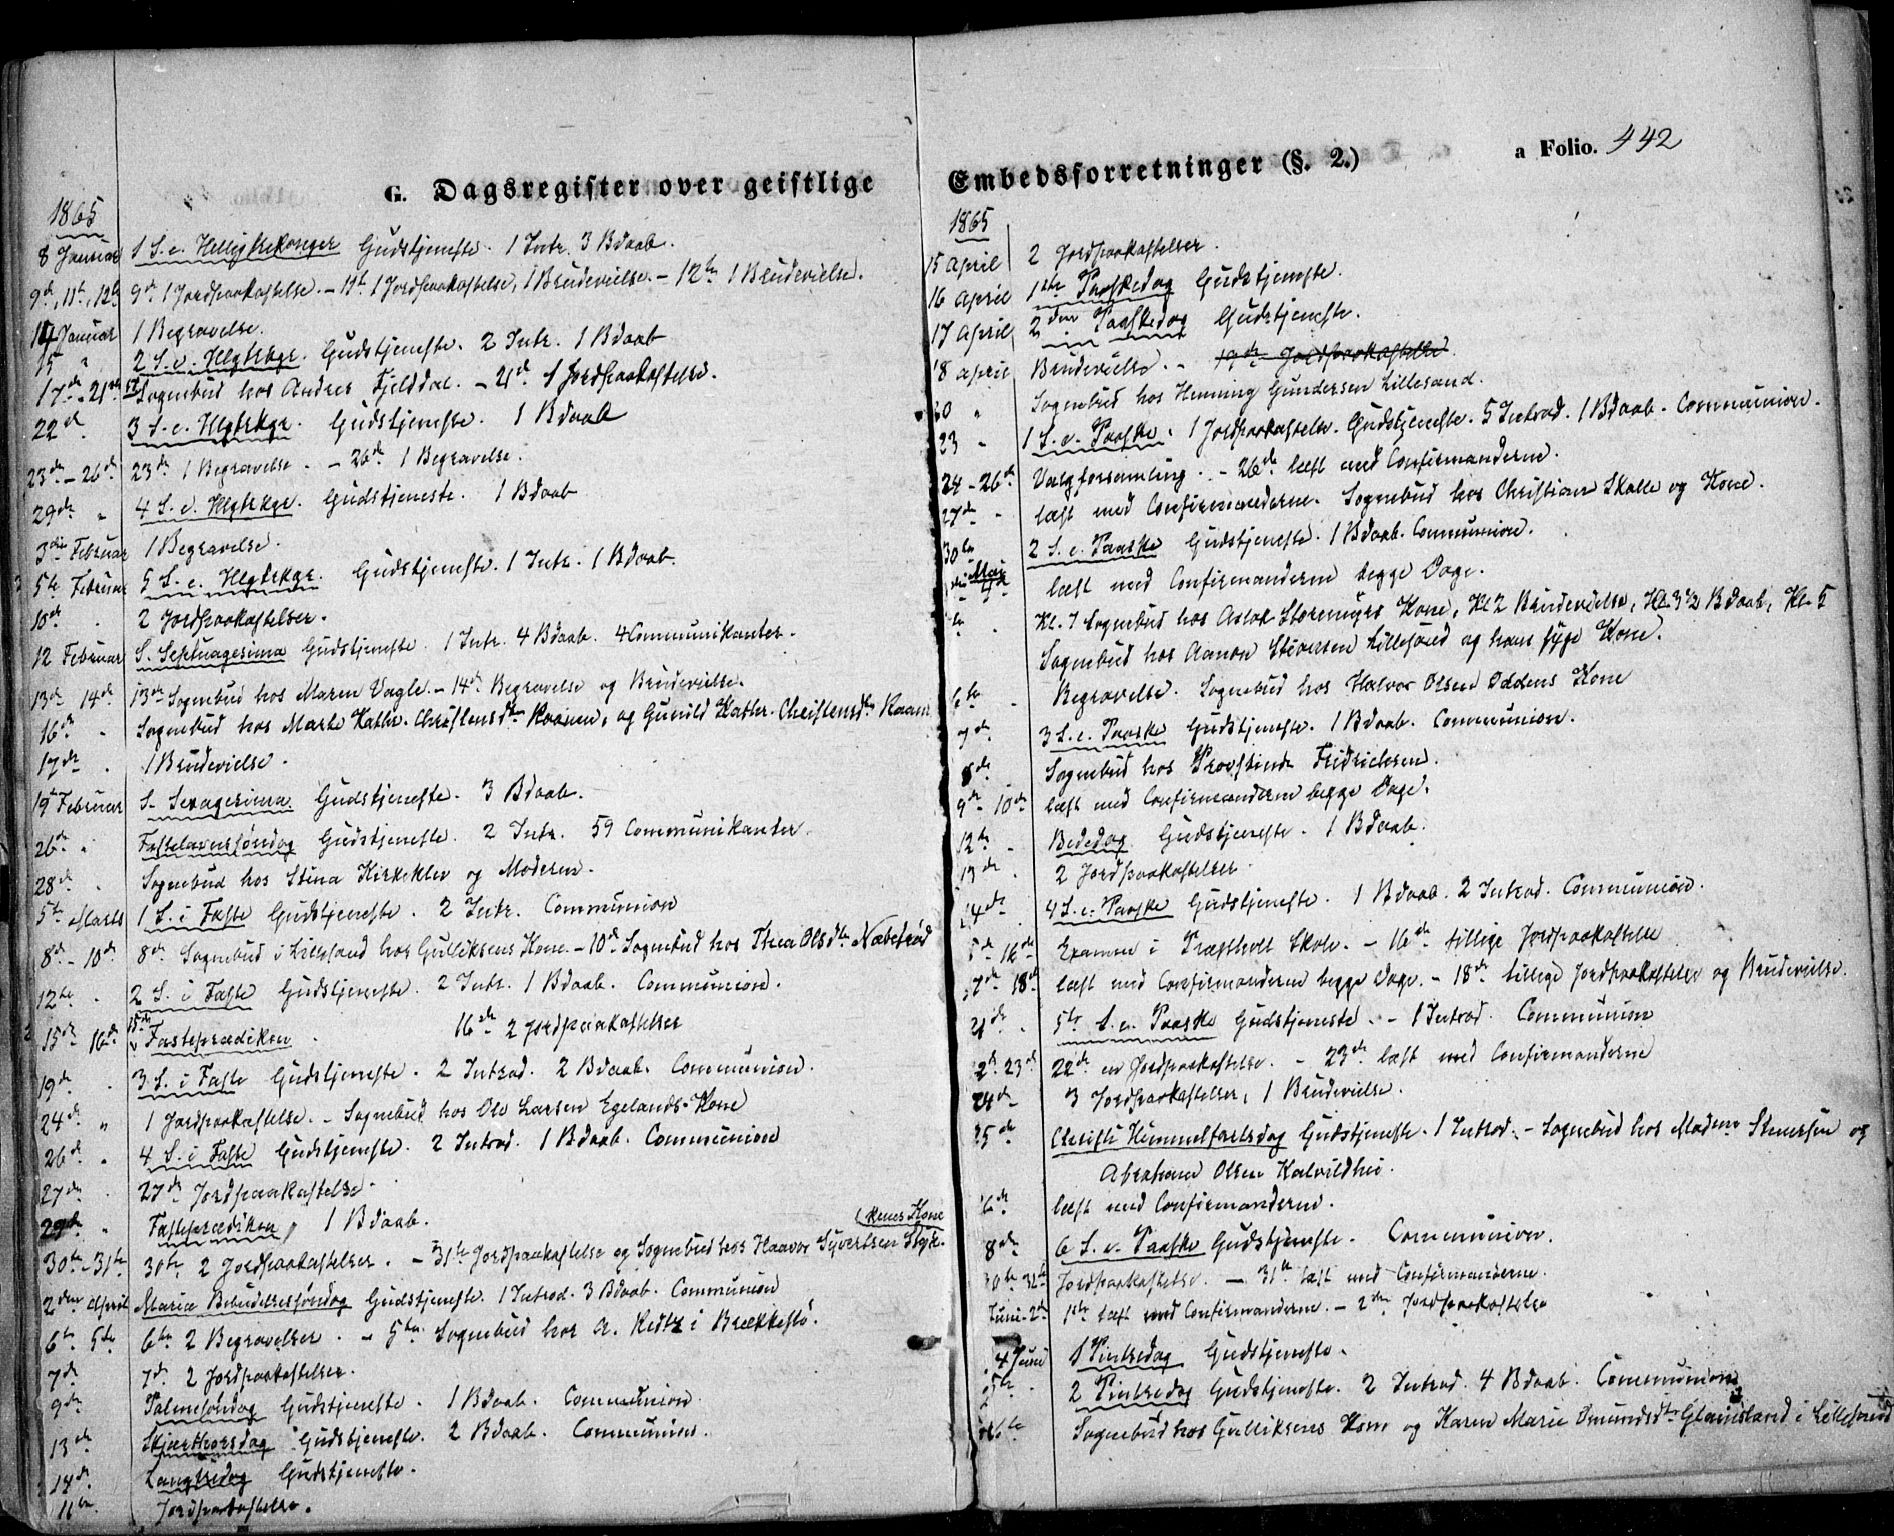 a Folio. 442
G. Dagsregister over geistlige
1865
8 Januar 1 S. e. Helligtrekonger Gudstjeneste. 1 Intr. 3 Bdaab.
9de, 11te, 12te 9de 1 Jordpaakastelse. - 11te 1 Jordpaakastelse, 1 Brudevielse. - 12te 1 Brudevielse.
14 Januar 1 Begravelse.
15 " 2 S. e. Hlgtrkgr. Gudstjeneste. 2 Intr. 1 Bdaab
17de - 21de Sognebud hos Andres Fjelddal. - 21de 1 Jordpaakastelse.
22de. 3 S. e. Hlgtrkgr. Gudstjeneste. 1 Bdaab
23de - 26de 23de 1 Begravelse. - 26de 1 Begravelse.
29de " 4 S. e. Hlgtrkgr. Gudstjeneste. 1 Bdaab
3die Februar 1 Begravelse.
5te Februar 5 S. e. Hlgtrkgr. Gudstjeneste. 1 Intr. 1 Bdaab.
10de . 2 Jordpaakastelser.
12 Februar S. Septuagesima Gudstjeneste. 1 Intr. 4 Bdaab. 4 Communikanter.
13de 14de 13de Sognebud hos Maren Vagle. - 14de Begravelse og Brudevielse.
16de . Sognebud hos Marte Kathr. Christensdtr Kaanen, og Gunild Kathr. Christensdtr Kaanen
17de . 1 Brudevielse.
19de Februar S. Sexagesima Gudstjeneste. 3 Bdaab.
26de . Fastelavnssøndag Gudstjeneste. 2 Intr. 59 Communikanter.
28de . Sognebud hos Stina Kirkeklev og Moderen.
5te Marts 1 S. i Faste Gudstjeneste. 2 Intr. Communion
8de - 10de 8de Sognebud i Lillesand hos Gulliksens Kone. - 10de Sognebud hos Thea Olsdtr Næbesrød
12te . 2 S. i Faste Gudstjeneste. 2 Intr. 1 Bdaab. Communion.
15de 16de 15de Fasteprædiken. 16de 2 Jordpaakastelser
19de . 3 S. i Faste Gudstjeneste. 2 Introd. 2 Bdaab. Communion.
24de " 1 Jordpaakastelse. - Sognebud hos Ole Larsen Egelands Kone
26de . 4 S. i Faste Gudstjeneste. 2 Introd. 1 Bdaab. Communion
27de . 27de Jordpaakastelse.
29de " Fasteprædiken, 1 Bdaab.
30te - 31te 30te 2 Jordpaakastelser. - 31te Jordpaakastelse og Sognebud hos Haavor Syvertsen Skjk-
kenes Kone
2den April Mariæ Bebudelsessøndag Gudstjeneste. 1 Introd. 3 Bdaab. Communion
6te 5te 6te 2 Begravelser. - 5te Sognebud hos A. Reitz i Brækkestø.
7de 7de 2 Jordpaakastelser.
9de Palmesøndag Gudstjeneste. 1 Bdaab. Communion.
13de Skjærthorsdag Gudstjeneste. 2 Bdaab. Communion.
14de Langfredag Gudstjeneste.
11te Jordpaakastelse.
Embedsforretninger (§. 2.)
1865
15 April 2 Jordpaakastelser.
16 April 1ste Paaskedag Gudstjeneste.
17 April 2den Paaskedag Gudstjeneste.
18 April Brudevielse. - 19de Jordpaakastelse.
20 " Sognebud hos Henning Gundersen Lillesand.
23 " 1 S. e. Paaske. 1 Jordpaakastelse. Gudstjeneste. 5 Introd. 1 Bdaab. Communion.
24 - 26de Valgforsamling. - 26de læst med Confirmanderne.
27de " læst med Confirmanderne. Sognebud hos Christian Skalle og Kone.
30te 2 S. e. Paaske Gudstjeneste. 1 Bdaab. Communion.
Mai læst med Confirmanderne begge Dage.
Kl. 7 Sognebud hos Aslak Storemyrs Kone, Kl 2 Brudevielse, Kl. 3½ Bdaab, Kl. 5
Sognebud hos Aanon Sivertsen Lillesand og hans syge Kone.
6te . Begravelse. Sognebud hos Halvor Olsen Oddens Kone
7de . 3 S. e. Paaske Gudstjeneste. 1 Bdaab. Communion.
8de Sognebud hos Provstinde Fridrichsen.
9de 10de læst med Confirmanderne begge Dage.
12te . Bededag Gudstjeneste. 1 Bdaab.
13de . 2 Jordpaakastelser.
14de . 4 S. e. Paaske Gudstjeneste. 1 Bdaab. 2 Introd. Communion.
5de 16de Examen i Præstholt Skole. - 16de tillige Jordpaakastelse
17de 18de læst med Confirmanderne begge Dage. - 18de tillige Jordpaakastelse og Brudevielse.
21de . 5te S. e. Paaske Gudstjeneste. - 1 Introd. Communion
2de 23de 22de en Jordpaakastelse. - 23de læst med Confirmanderne
24de 3 Jordpaakastelser, 1 Brudevielse.
25de Christi Himmelfartsdag Gudstjeneste. 1 Introd. - Sognebud hos Madam Simersen og
Abraham Olsen Kalvildhei.
6de læst med Confirmanderne.
8de 6 S. e. Paaske Gudstjeneste. Communion.
30te 31te Jordpaakastelse. - 31te læst med Confirmanderne.
Juni - 2de 1ste læst med Confirmanderne. - 2den Jordpaakastelse
4 Juni 1 Pintsedag Gudstjeneste.
5te . 2 Pintsedag Gudstjeneste. 2 Introd. 4 Bdaab. Communion
6te Sognebud hos Gulliksens Kone og Karen Marie Omundsdtr Glamsland i Lillesand